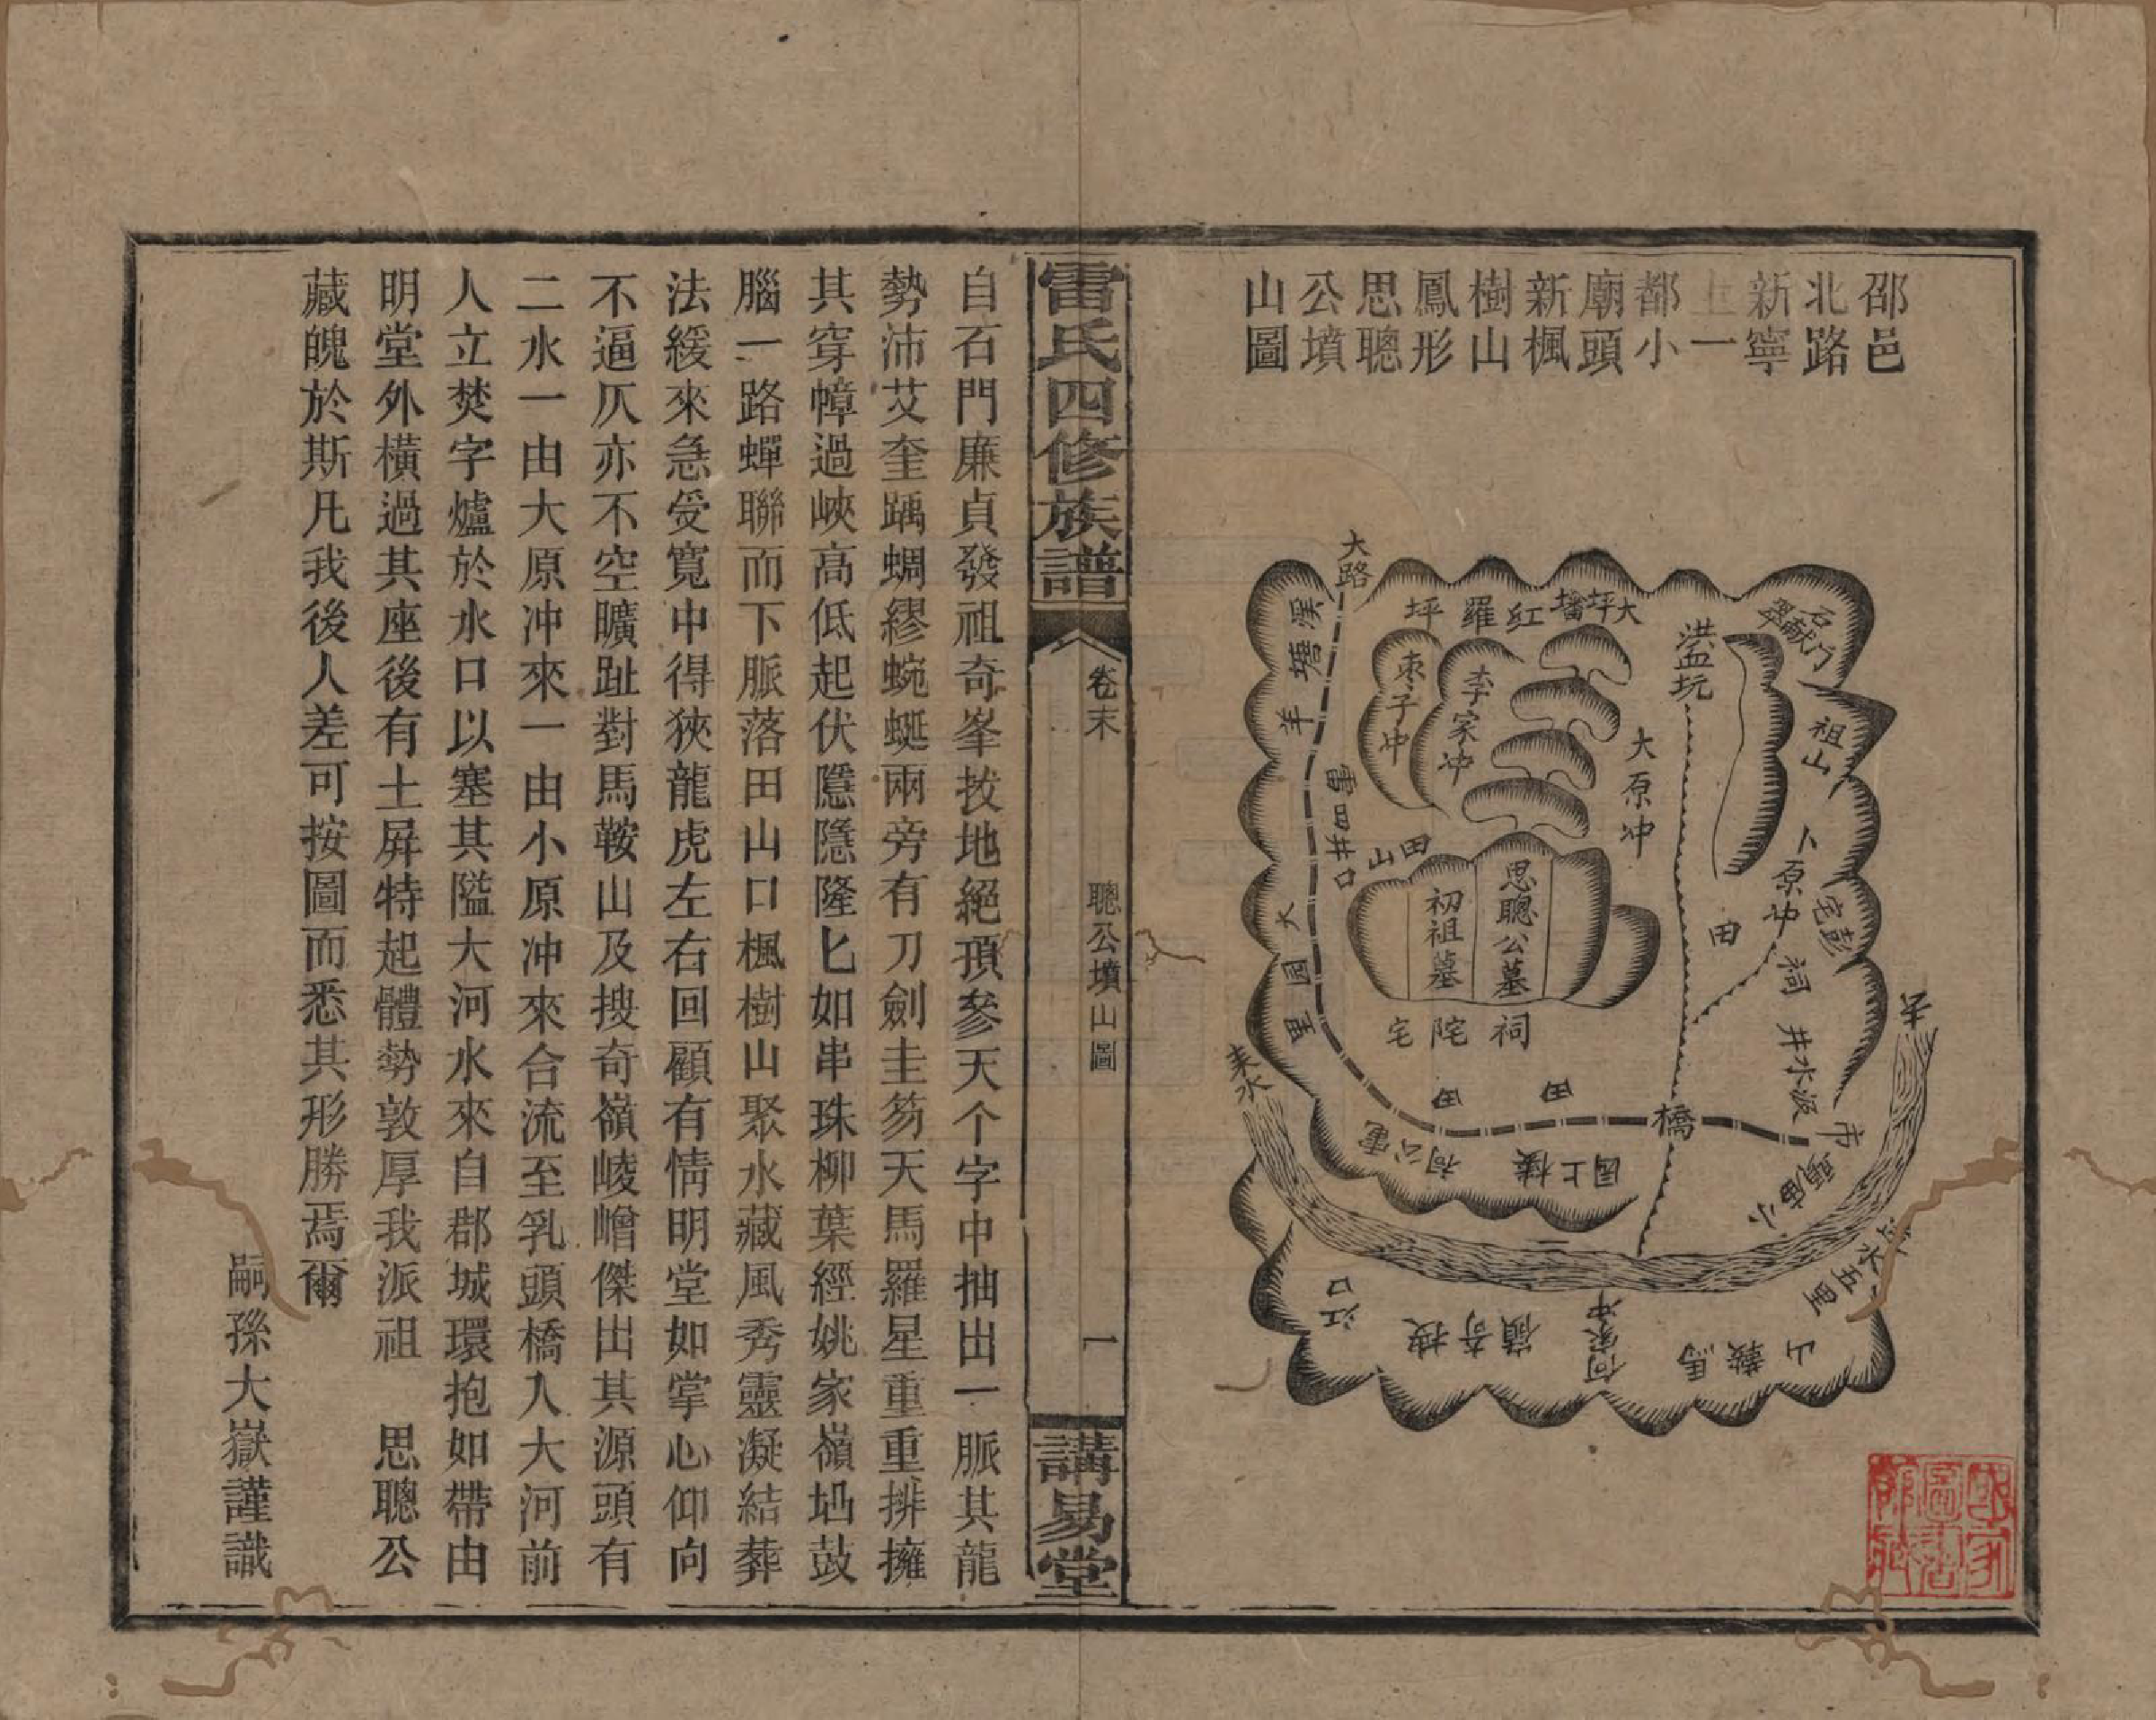 邵邑
北路
新寧
上一
都小
廟頭
新楓
樹山
鳳形
思聰
公墳
山圖
大路
大坪墦
紅羅坪
石門
献翠
祖山
洪益坑
溪塘羊
棗子冲
李家冲
大原冲
雷四井口
田山
思聰公墓
初祖墓
卜原冲
彭宅
田
祠
井水坂
大園里
祠陀宅
田
田
橋
市
去水
来水
江口
搜奇嶺
何家冲
馬鞍山
五里
雷氏四修族譜
卷末
聰公墳山圖
一
講易堂
自石門廉貞發祖奇峯拔地絕頂參天个字中抽出一脈其龍
勢沛艾奎踽蜩繆蜿蜒兩旁有刀劍圭笏天馬羅星重重排擁
其穿幛過峽高低起伏隱隱隆匕如串珠柳葉經姚家嶺凹鼓
腦一路蟬聯而下脈落田山口楓樹山聚水藏風秀靈凝結葬
法緩來急受寬中得狹龍虎左右回顧有情明堂如掌心仰向
不逼仄亦不空曠趾對馬鞍山及搜奇嶺崚嶒傑出其源頭有
二水一由大原冲來一由小原冲來合流至乳頭橋入大河前
人立焚字爐於水口以塞其隘大河水來自郡城環抱如帶由
明堂外橫過其座後有土屏特起體勢敦厚我派祖 思聰公
藏魄於斯凡我後人差可按圖而悉其形勝焉爾
嗣孫大嶽謹識